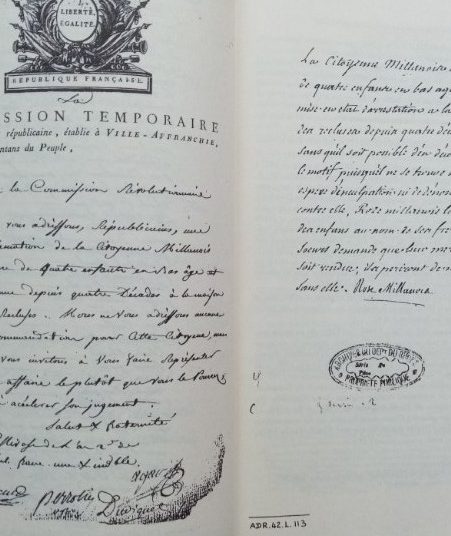 LIBERTÉ,
ÉGALITÉ.
RÉPUBLIQUE FRANÇAISE.
La
SSION TEMPORAIRE
républicaine, établie à VILLE-AFFRANCHIE,
ntans du Peuple,
la Commission Révolutionnaire
vous adressons, Républicains, une
de la Citoyenne Millanois
de quatre enfants en bas âge et
depuis quatre Décades à la maison
Recluses. Nous ne vous adressons aucune
pour cette Citoyenne, mais
vous invitons à vous faire
affaire le plutôt que vous le Pouvez
accélerer son jugement.
Salut & fraternité
de l'an 2 de
une & indble.
La Citoyenne Millanois
de quatre enfans en bas age
mise en etat d'arestation a la
des recluses depuis quatre de
sans quil soit posible d'en de
le motif puisquil ne se trouve
espece d'inculpation ni de denon
contre elle, Rose millanois
des enfans au nom de ses fre
Soeurs demande que leur me
soit rendue, ils periront de
sans elle. Rose Millanois
PROPRIÉTÉ PUBLIQUE
ADR.42.L.113